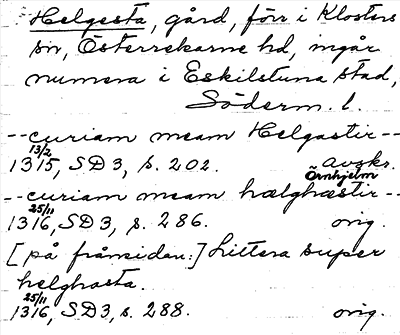 Helgesta, gård, förr i Klosters
sn, Österrekarne hd, ingår
numera i Eskilstuna stad,
Söderm. l.
--curiam meam Helgastir--
13/2
1315, SD3, s. 202. avskr.
Örnhjelm
--curiam meam hælghæstir--
25/11
1316, SD3, s. 286. orig.
[på framsidan:] Littera super
helghasta.
25/11
1316, SD3, s. 288. orig.